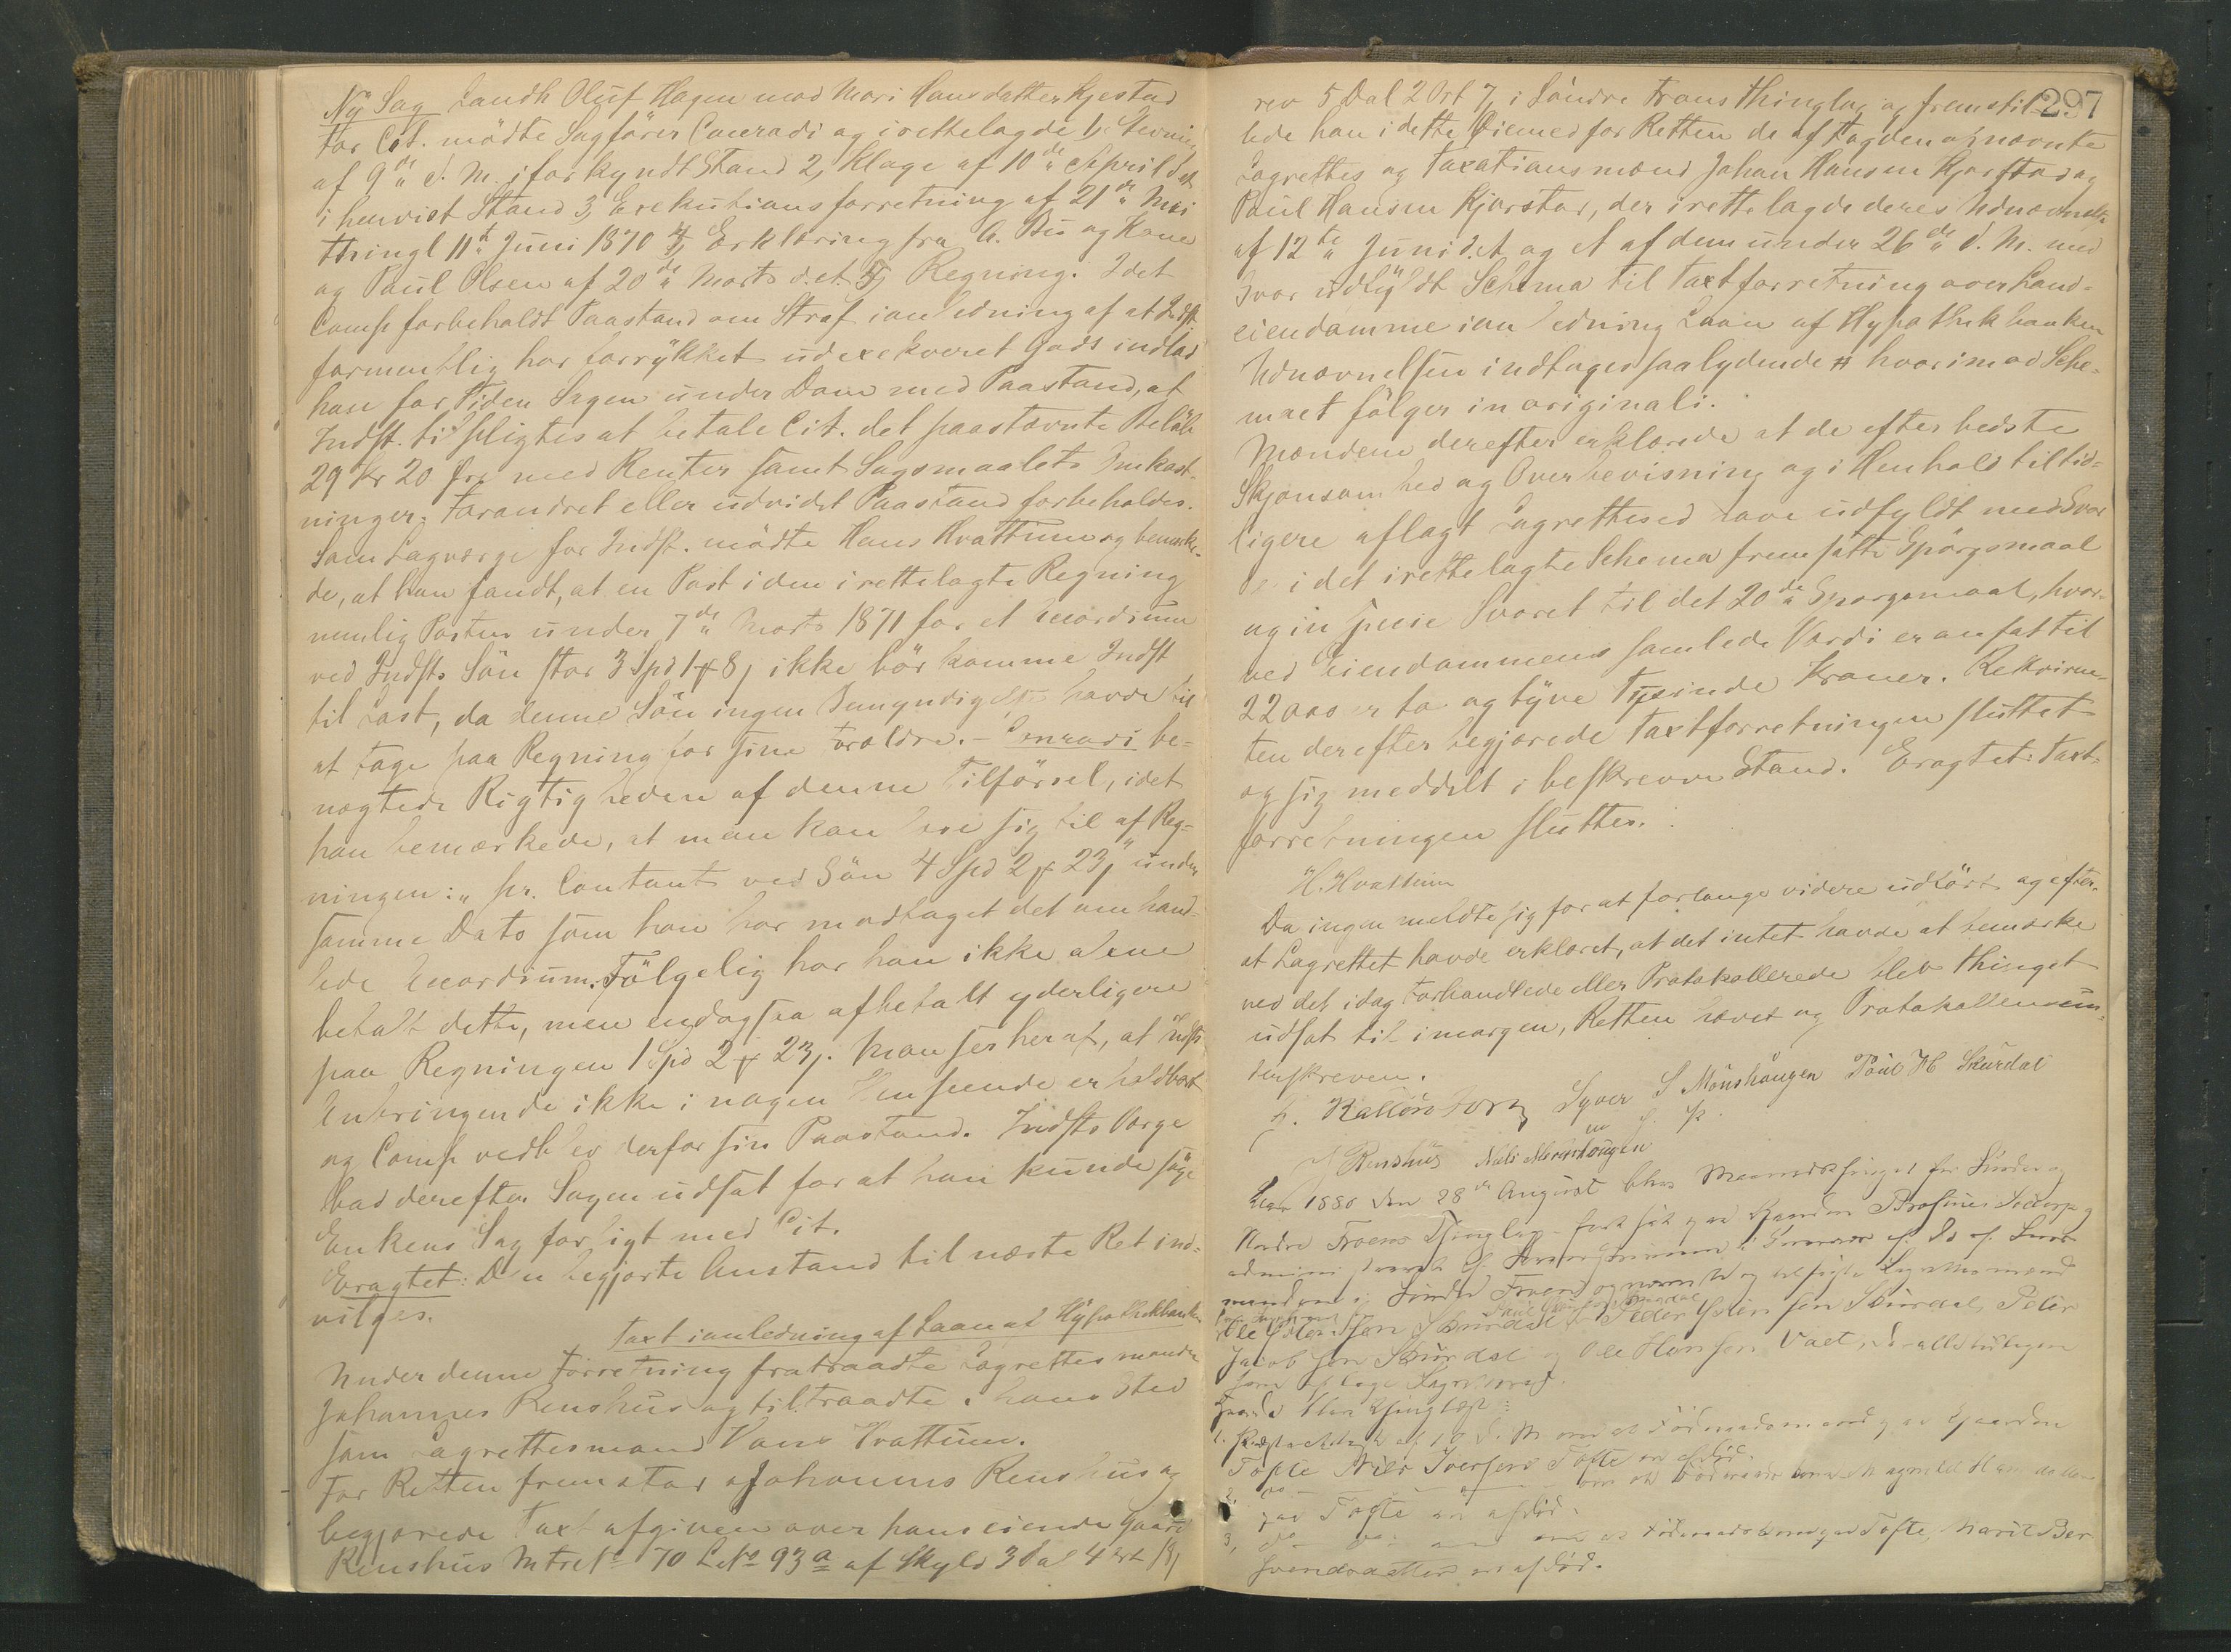 Ny Sag Landh Oluf Hagen mod Mari Hansdatter Kjestad
For Cit. mødte Sagfører Conradi og irettelagde 1, Stevning
af 9de d. M. i forkyndt Stand 2, Klage af 10de April d. A.
i henvist Stand 3, Exekutionsforretning af 21de Mai
thingl 11te Juni 1870 4, Erklæring fra A. Bu og Kone
og Paul Olsen af 20de Marts d. A. 5, Regning. Idet
Comp forbeholdt Paastand om Straf i anledning af at Indst.
formentlig har forrykket udexekveret Gods indlod
han for Tiden Sagen under Dom med Paastand, at
Indst. tilpligtes at betale Cit. det paastævnte Beløb
29 Kr 20 Øre med Renter samt Sagsmaalets Omkost-
ninger. Forandret eller udvidet Paastand forbeholdes.
Som Lagværge for Indst. mødte Hans Hvattum og bemærke-
de, at han fandt, at en Post i den irettelagte Regning
nemlig Posten under 7de Marts 1871 for et Accordium
ved Indsts Søn stor 3 Spd 1 # 8 ikke bør komme Indst
til Last, da denne Søn ingen Bemyndigelse havde til
at tage paa Regning for sine Forældre. - Conradi be-
nægtede Rigtigheden af denne Tilførsel, idet
han bemærkede, at man kan see sig til af Reg-
ningen: "pr. Contant ved Søn 4 Spd 2 # 23" under
samme Dato som han har modtaget det omhand-
lede Accordium. Følgelig har han ikke alene
betalt dette, men endog saa afbetalt yderligere
paa Regningen 1 Spd 2 # 23. Man ser heraf, at Indsts
Anbringende ikke i nogen Henseende er holdbart
og Comp vedblev derfor sin Paastand. Indsts Værge
bad derefter Sagen udsat for at han kunde søge
Enkens Sag forligt med Cit.
Eragtet: Den begjærte Anstand til næste Ret ind-
vilges.
Taxt i anledning af Laan af Hypothekbanken
Under denne Forretning fratraadte Lagrettesmanden
Johannes Renshus og tiltraadte i hans Sted
som Lagrettesmand Hans Hvattum.
For Retten fremstod Johannes Renshus og
begjærede Taxt afgiven over hans eiende Gaard
Renshus Mtr No 70 L No 93a af Skyld 3 Dal 4 Ort 18
297
rev 5 Dal 2 Ort 7 i Søndre Frons Thinglag og fremstil-
lede han i dette Øiemed for Retten de af Fogden opnævnte
Lagrettes og Taxationsmænd Johan Hansen Kjorstad og
Paul Hansen Kjorstad, der irettelagde deres Udnævnelse
af 12te Juni d. A. og et af dem under 26de d. M. med
Svar udfyldt Schema til Taxtforretning over Land-
eiendomme i anledning Laan af Hypothekbanken
Udnævnelsen indtages saalydende # hvorimod Sche-
maet følger in originali.
Mændene derefter erklærede at de efter bedste
Skjønsomhed og Overbevisning og i Henhold til tid-
ligere aflagt Lagrettesed have udfyldt med Svar
de i det irettelagte Schema fremsatte Spørgsmaal
og in specie Svaret til det 20de Spørgsmaal, hvor-
ved Eiendommens samlede Værdi er ansat til
22000 er to og tyve Tusinde Kroner. Rekviren-
ten derefter begjærede Taxtforretningen sluttet
og sig meddelt i beskreven Stand. Eragtet: Taxt-
forretningen sluttes.
H. Hvattum
Da ingen meldte sig for at forlange videre udført og efter-
at Lagrettet havde erklæret, at det intet havde at bemærke
ved det idag Forhandlede eller Protokollerede blev Thinget
udsat til imorgen, Retten hævet og Protokollen un-
derskreven.
Syver S Monshaugen Paul H Skurdal
J Renshus Niels Monshaugen
Aar 1880 den 28de August blev Maanedsthinget for Søndre og
Nordre Frons Thinglag
Søndre Fron og
Paul
Ole Skurdal Peder Skurdal, Peder
Jacobsen Skurdal og Ole Hansen
som aflagde Lagrettesed.
1. af d. M om at Føderaadsmand paa Gaarden
Tofte Nils Iversen Tofte er afdød.
2, om at
paa Tofte er afdød.
3, om at Føderaadskone paa Tofte, Marit
Svendsdatter er afdød.